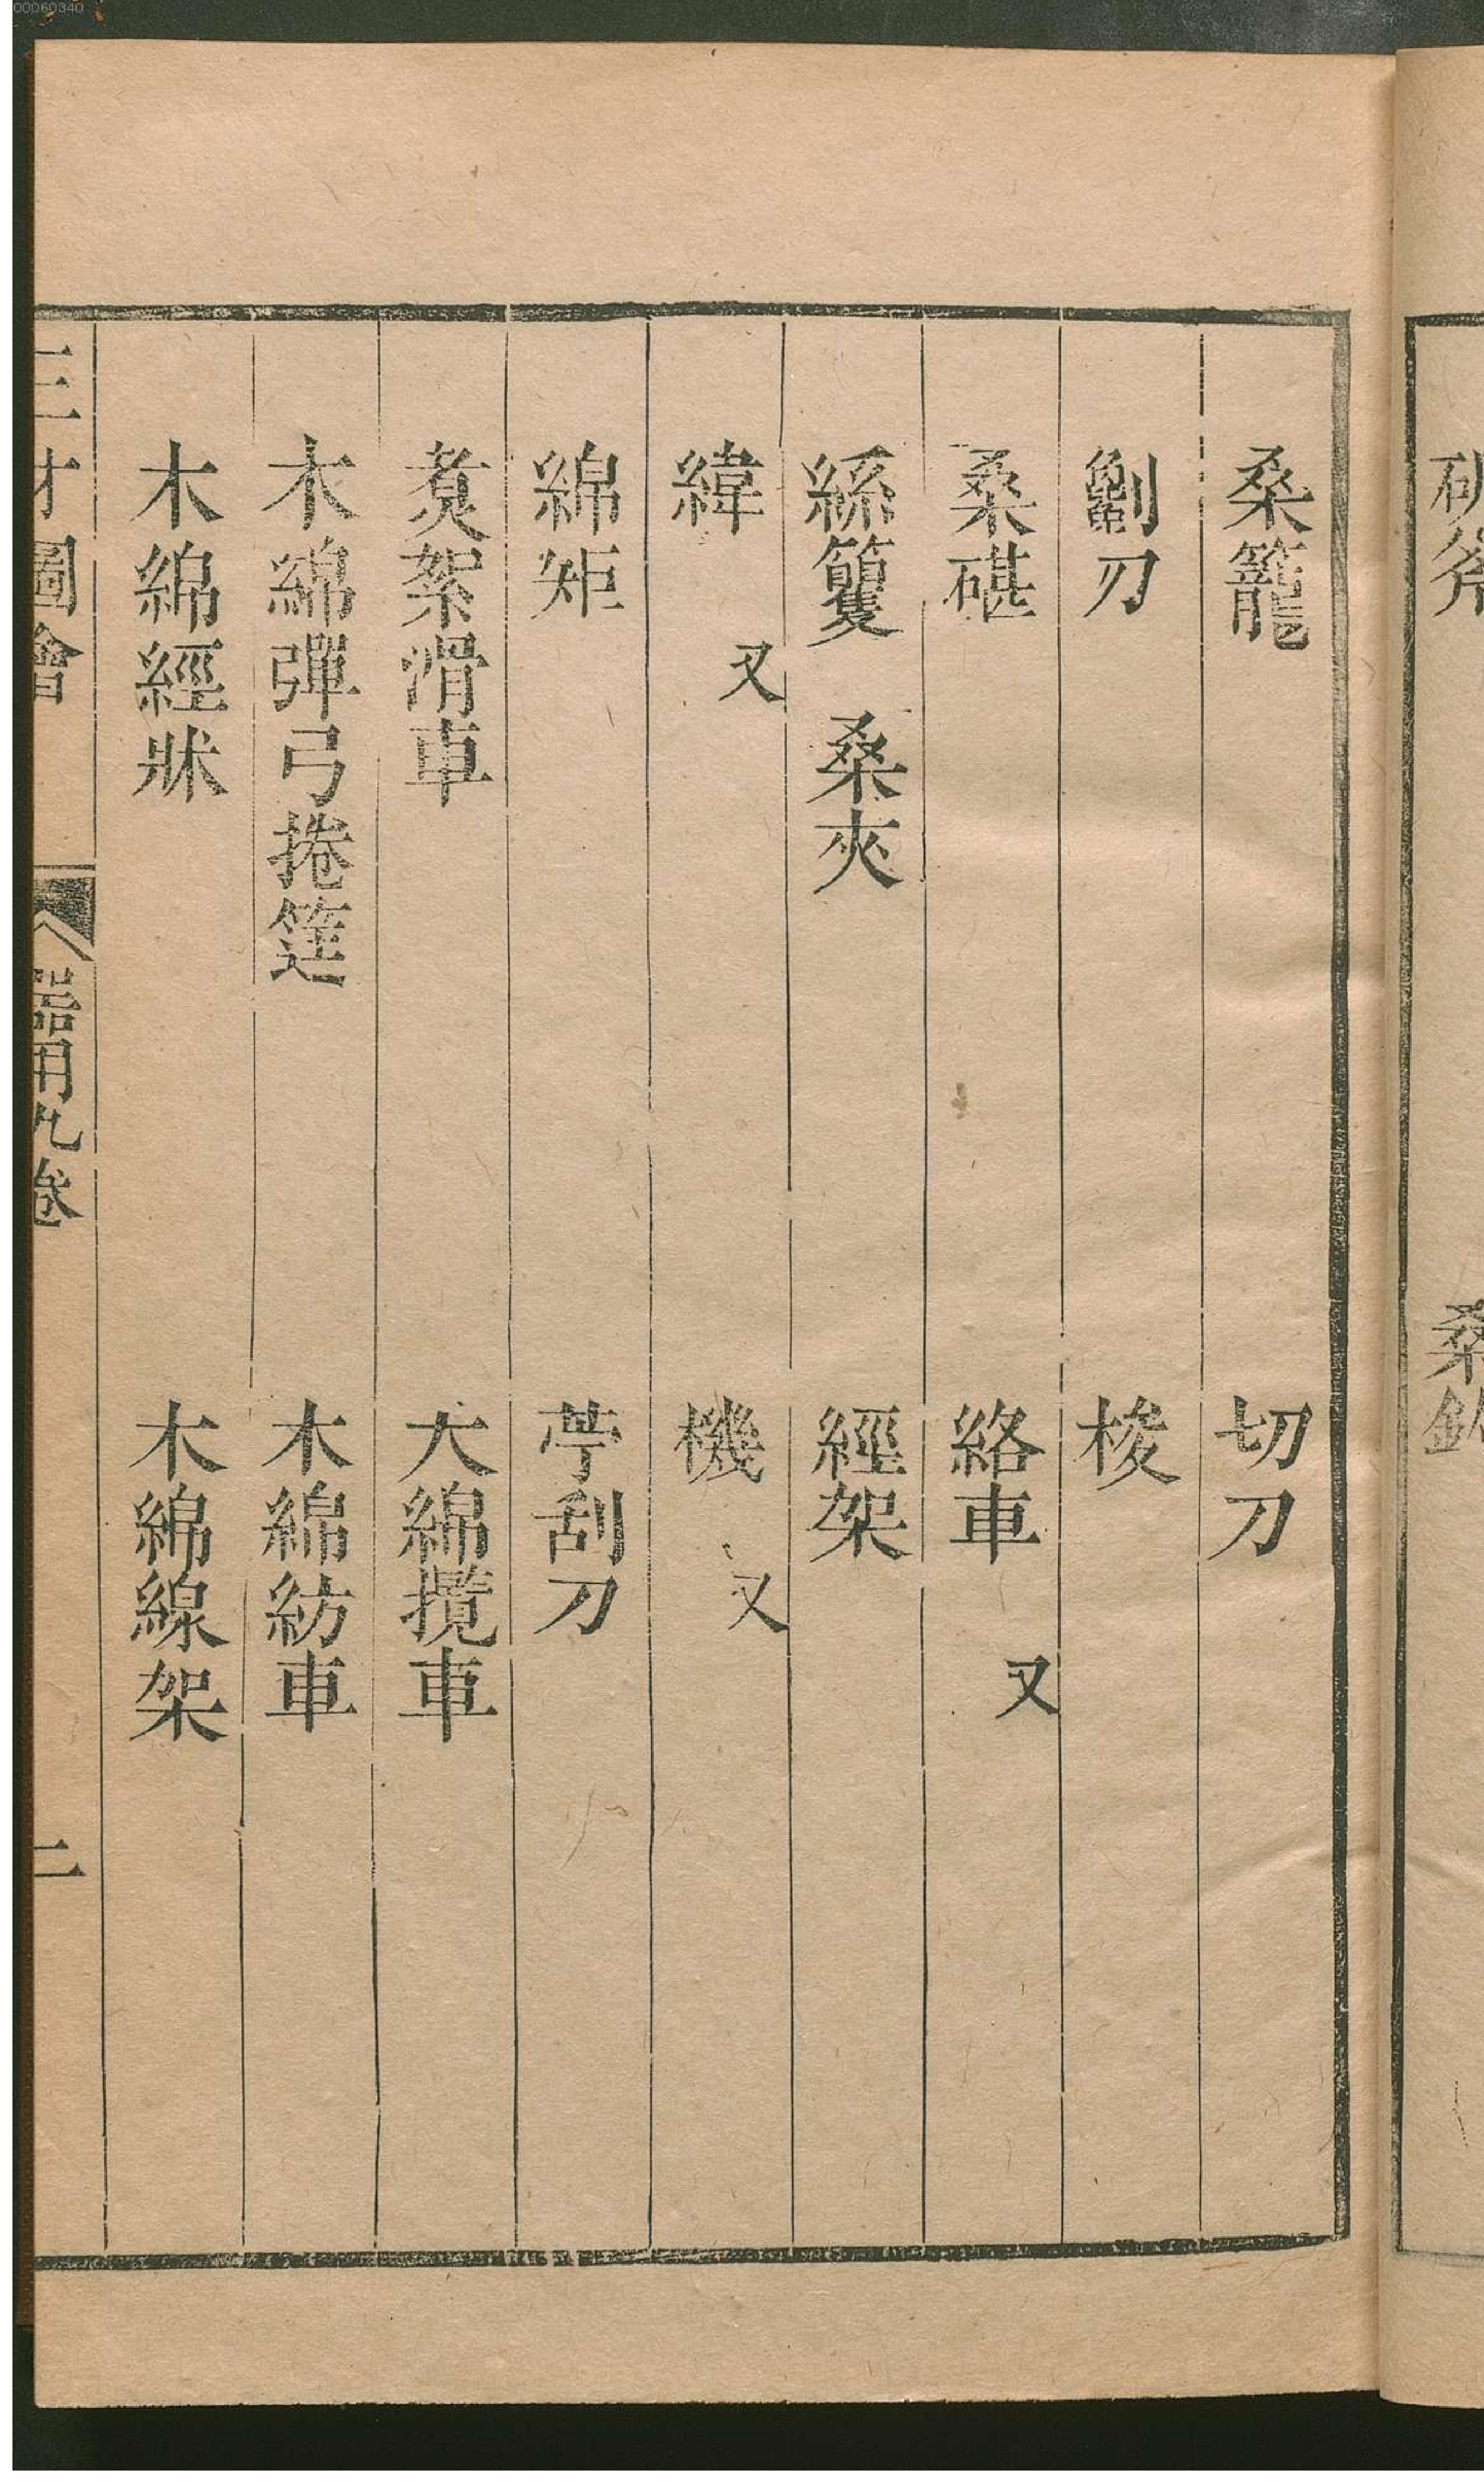 斧
桑
桑籠 切刀
劖刀 梭
桑碪 絡車 又
絲籰 桑夾 經架
緯 又 機 又
綿矩 苧刮刀
煑絮滑車 大綿攪車
木綿彈弓捲筳 木綿紡車
木綿經牀 木綿線架
三才圖會 器用九卷 二
00060340